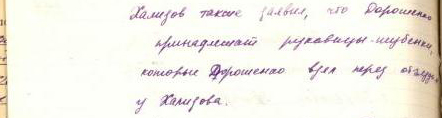 Хализов также заявил, что Дорошенко
принадлежат рукавицы-шубенки,
которые Дорошенко взял перед отъездом
у Хализова.